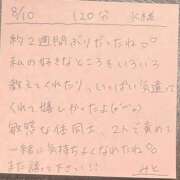 8/10 120分 水様
約2週間ぶりだったね♡
私の好きなところをいろいろ
教えてくれたり、いっぱい気遣って
くれて嬉しかったよ(^^)
敏感な体同士、2人で責めて
一緒に気持ちよくなれたね♡
また誘って下さい!!
みと